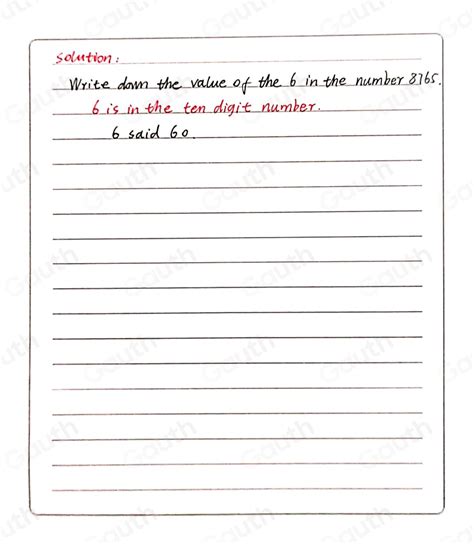 Solution:
Write down the value of the 6 in the number 8765.
6 is in the ten digit number.
6 said 60.